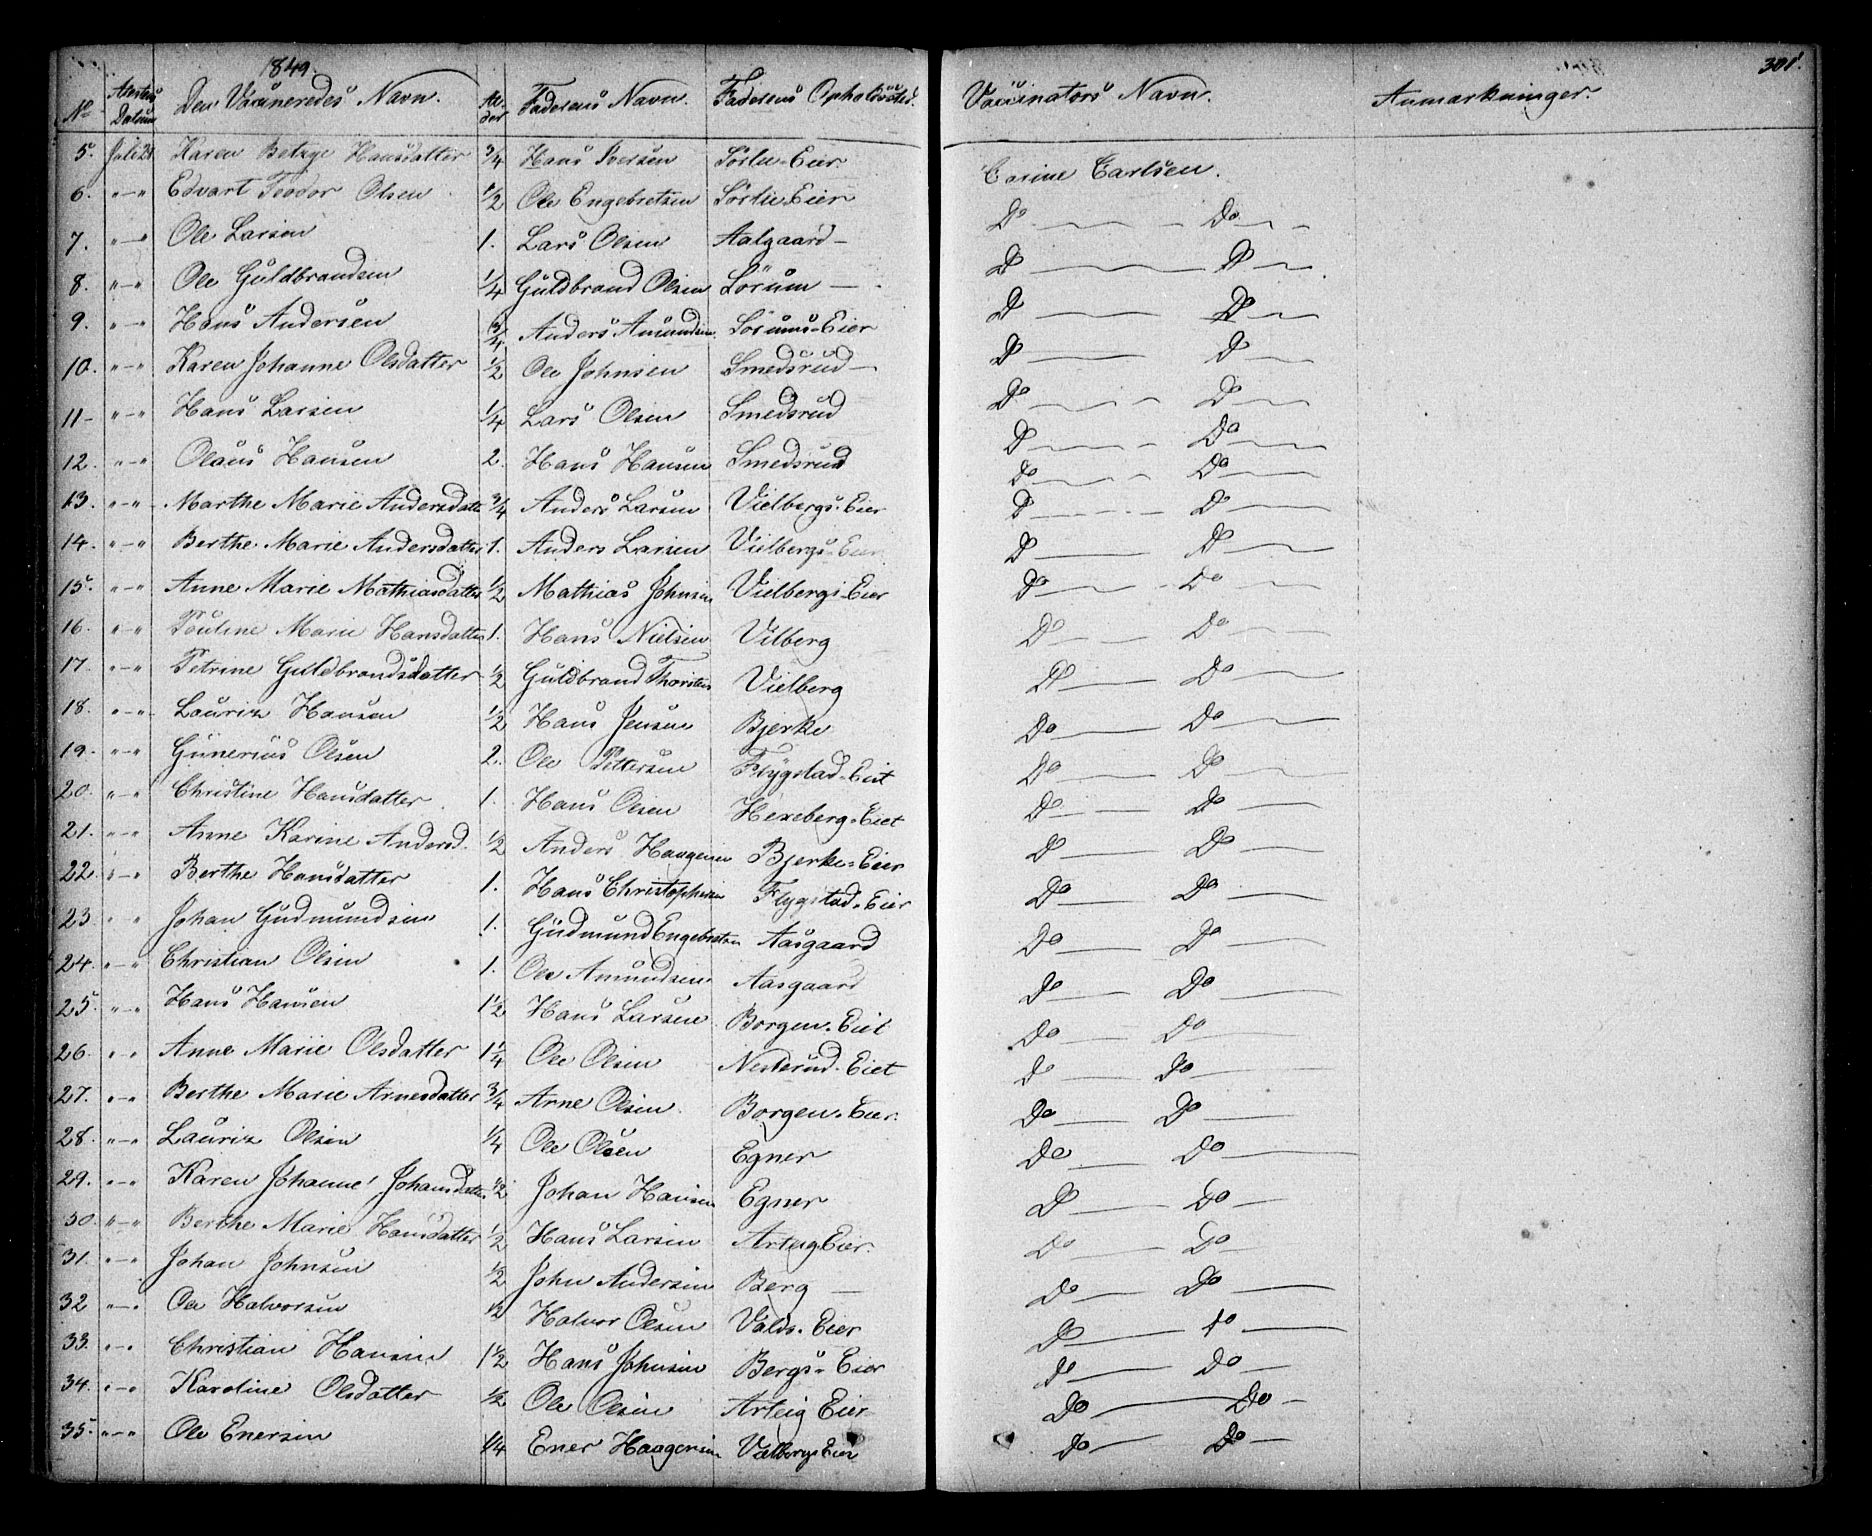 1849.
301.
No Attestens Datum Den Vaccineredes Navn. Alder Faderens Navn. Faderens Opholdssted. Vaccinators Navn. Anmærkninger.
5. Juli 21 Karen Betzye Hansdatter 3/4 Hans Iversen Sörlie-Eier Carine Carlsen.
6. "-" Edvart Teodor Olsen 1/2 Ole Engebretsen Sörlie-Eier Do Do
7. "-" Ole Larsen 1. Lars Olsen Aalgaard- Do Do
8. "-" Ole Guldbrandsen 1/4 Guldbrand Olsen Sörum - Do Do
9. "-" Hans Andersen 3/4 Anders Amundsen Sörums-Eier Do Do
10. "-" Karen Johanne Olsdatter 1/2 Ole Johnsen Smedsrud- Do Do
11- "-" Hans Larsen 1/4 Lars Olsen Smedsrud Do Do
12. "-" Olaus Hansen 2. Hans Hansen Smedsrud Do Do
13. "-" Marthe Marie Andersdatter 3/4 Anders Larsen Vielbergs-Eier Do Do
14. "-" Berthe Marie Andersdatter 1. Anders Larsen Vielbergs-Eier Do Do
15. "-" Anne Marie Mathiasdatter 1/2 Mathias Johnsen Vielbergs-Eier Do Do
16. "-" Pouline Marie Hansdatter 1. Hans Nielsen Vilberg Do Do
17. "-" Petrine Guldbrandsdatter 1/2 Guldbrand Thorsten Vielberg Do Do
18. "-" Lauriz Hansen 1/2 Hans Jensen Bjerke Do Do
19. "-" Gunerius Olsen 2. Ole Pettersen Flygstad-Eiet Do Do
20. "-" Christine Hansdatter 1. Hans Olsen Hexeberg-Eiet Do Do
21. "-" Anne Karine Andersd. 1/2 Anders Haagensen Bjerke-Eier Do Do
22. "-" Berthe Hansdatter 1. Hans Christophersen Flygstad-Eier Do Do
23. "-" Johan Gudmundsen 1. Gudmund Engebretsen Aasgaard Do Do
24. "-" Christian Olsen 1. Ole Amundsen Aasgaard Do Do
25. "-" Hans Hansen 1 1/2 Hans Larsen Borgen-Eiet Do Do
26. "-" Anne Marie Olsdatter 1 1/4 Ole Olsen Nesterud-Eiet Do Do
27. "-" Berthe Marie Arnesdatter 3/4 Arne Olsen Borgen-Eier. Do Do
28. "-" Lauriz Olsen 1/4 Ole Olsen Egner Do Do
29. "-" Karen Johanne Johansdatter 1/2 Johan Hansen Egner Do Do
30. "-" Berthe Marie Hansdatter 1/2 Hans Larsen Arteig Eier. Do Do
31. "-" Johan Johnsen 1/2 John Andersen Berg - Do Do
32 "-" Ole Halvorsen 1/2 Halvor Olsen Valds-Eier Do Do
33. "-" Christian Hansen 1 1/2 Hans Johnsen Bergs-Eier Do Do
34. "-" Karoline Olsdatter 1/2 Ole Olsen Arteig Eier Do Do
35. "-" Ole Enersen 1/4 Ener Haagensen Vælbergs Eier Do Do